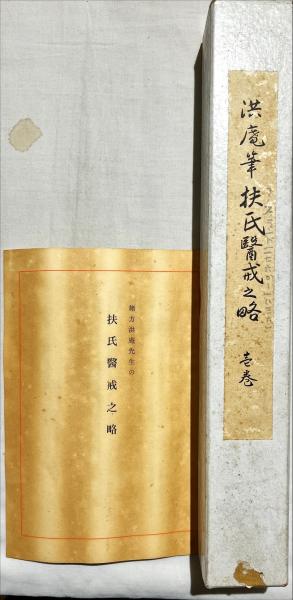 洪庵筆 扶氏醫戒之略 壱巻
緒方洪庵先生の
扶氏醫戒之略